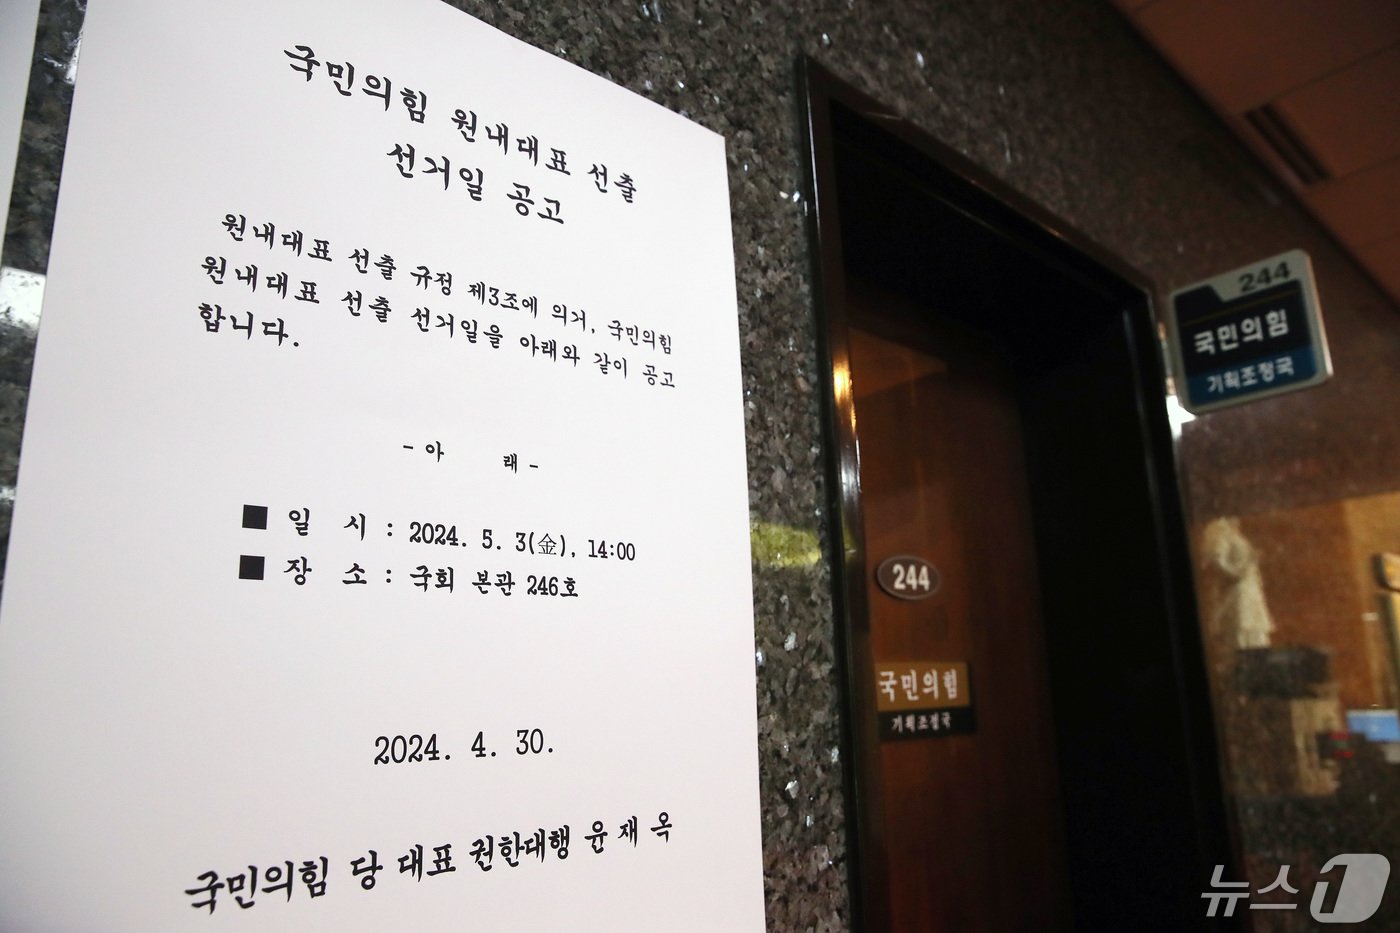 국민의힘 원내대표 선출
선거일 공고
원내대표 선출 규정 제3조에 의거, 국민의힘
원내대표 선출 선거일을 아래와 같이 공고
합니다.
- 아 래 -
■ 일 시 : 2024. 5. 3(金), 14:00
■ 장 소 : 국회 본관 246호
2024. 4. 30.
국민의힘 당 대표 권한대행 윤 재 옥
244
국민의힘
기획조정국
244
국민의힘
기획조정국
뉴스1